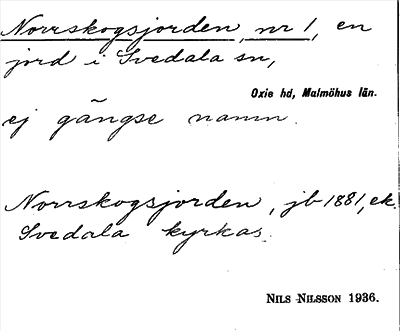 Norrskogsjorden, nr 1, en
jord i Svedala sn,
Oxie hd, Malmöhus län.
ej gängse namn.
Norrskogsjorden, jb 1881, ek.
Svedala kyrkas.
NILS NILSSON 1936.